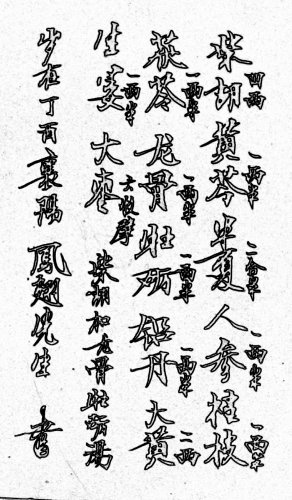 柴胡四两黄芩一两半半夏二合半人参一两半桂枝一两半
茯苓一两半龙骨一两半牡蛎一两半铅丹一两半大黄二两
生姜一两半大枣六枚擘柴胡加龙骨牡蛎汤
岁在丁酉襄阳鳳翅先生書